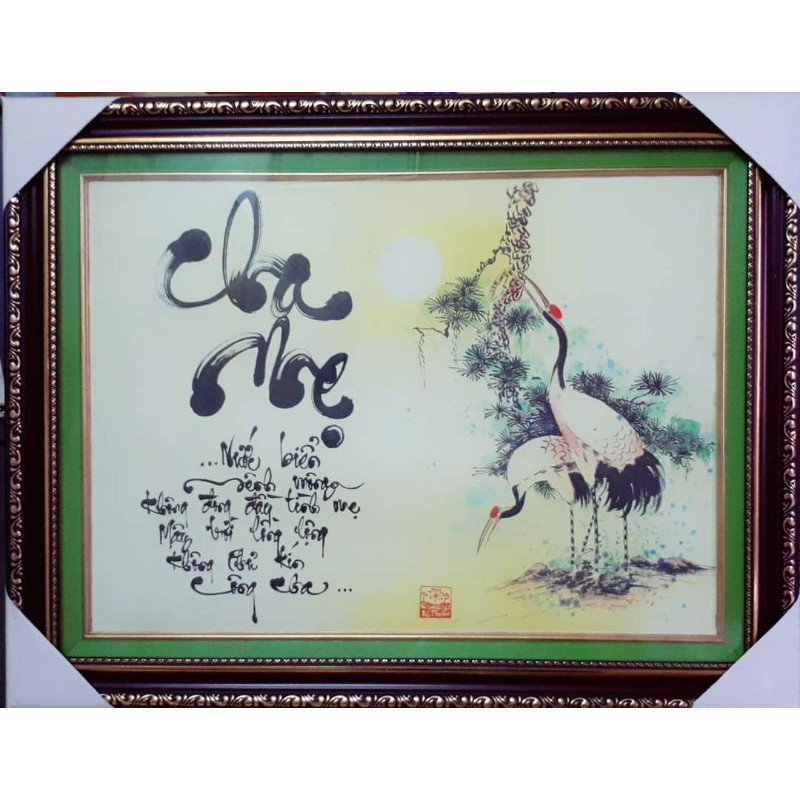 Cha
Mẹ
...Nước biển
mênh mông
không đong đầy tình mẹ
Mây trời lồng lộng
không phủ kín
công cha...